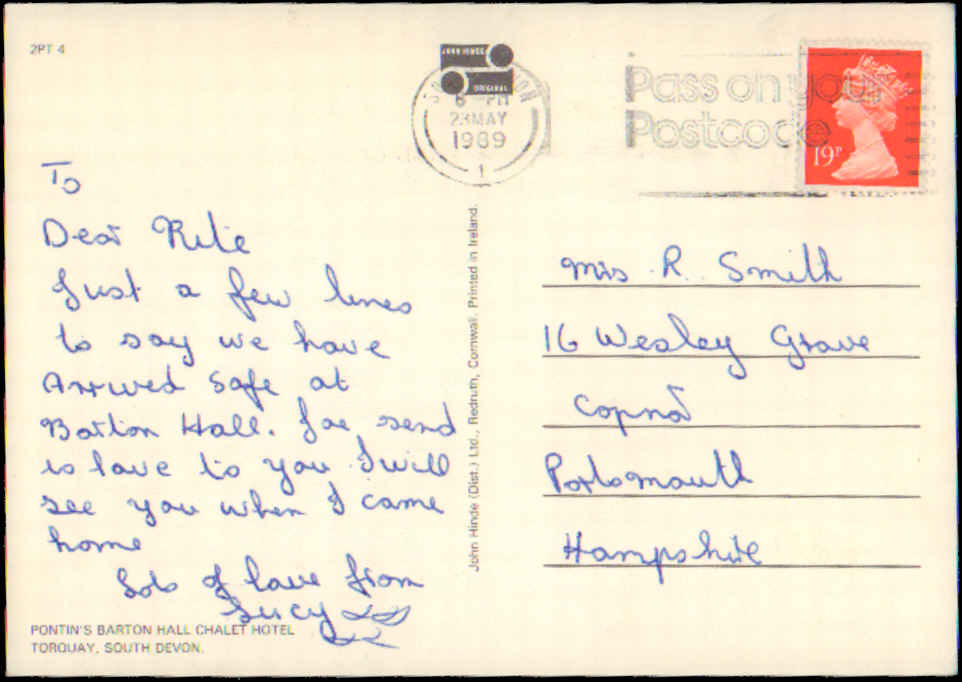 2PT 4
JOHN HINDE
ORIGINAL
6 - PM
23 MAY
1989
1
Pass on your
Postcode
19P
To
Dear Rite
Just a few lines
to say we have
Arrived safe at
Barton Hall. Joe send
is love to you I will
see you when I come
home
Lots of love from
Lucy
PONTIN'S BARTON HALL CHALET HOTEL
TORQUAY, SOUTH DEVON.
John Hinde (Dist.) Ltd., Redruth, Cornwall. Printed in Ireland.
Mrs R. Smith
16 Wesley Grove
Copnor
Portsmouth
Hampshire